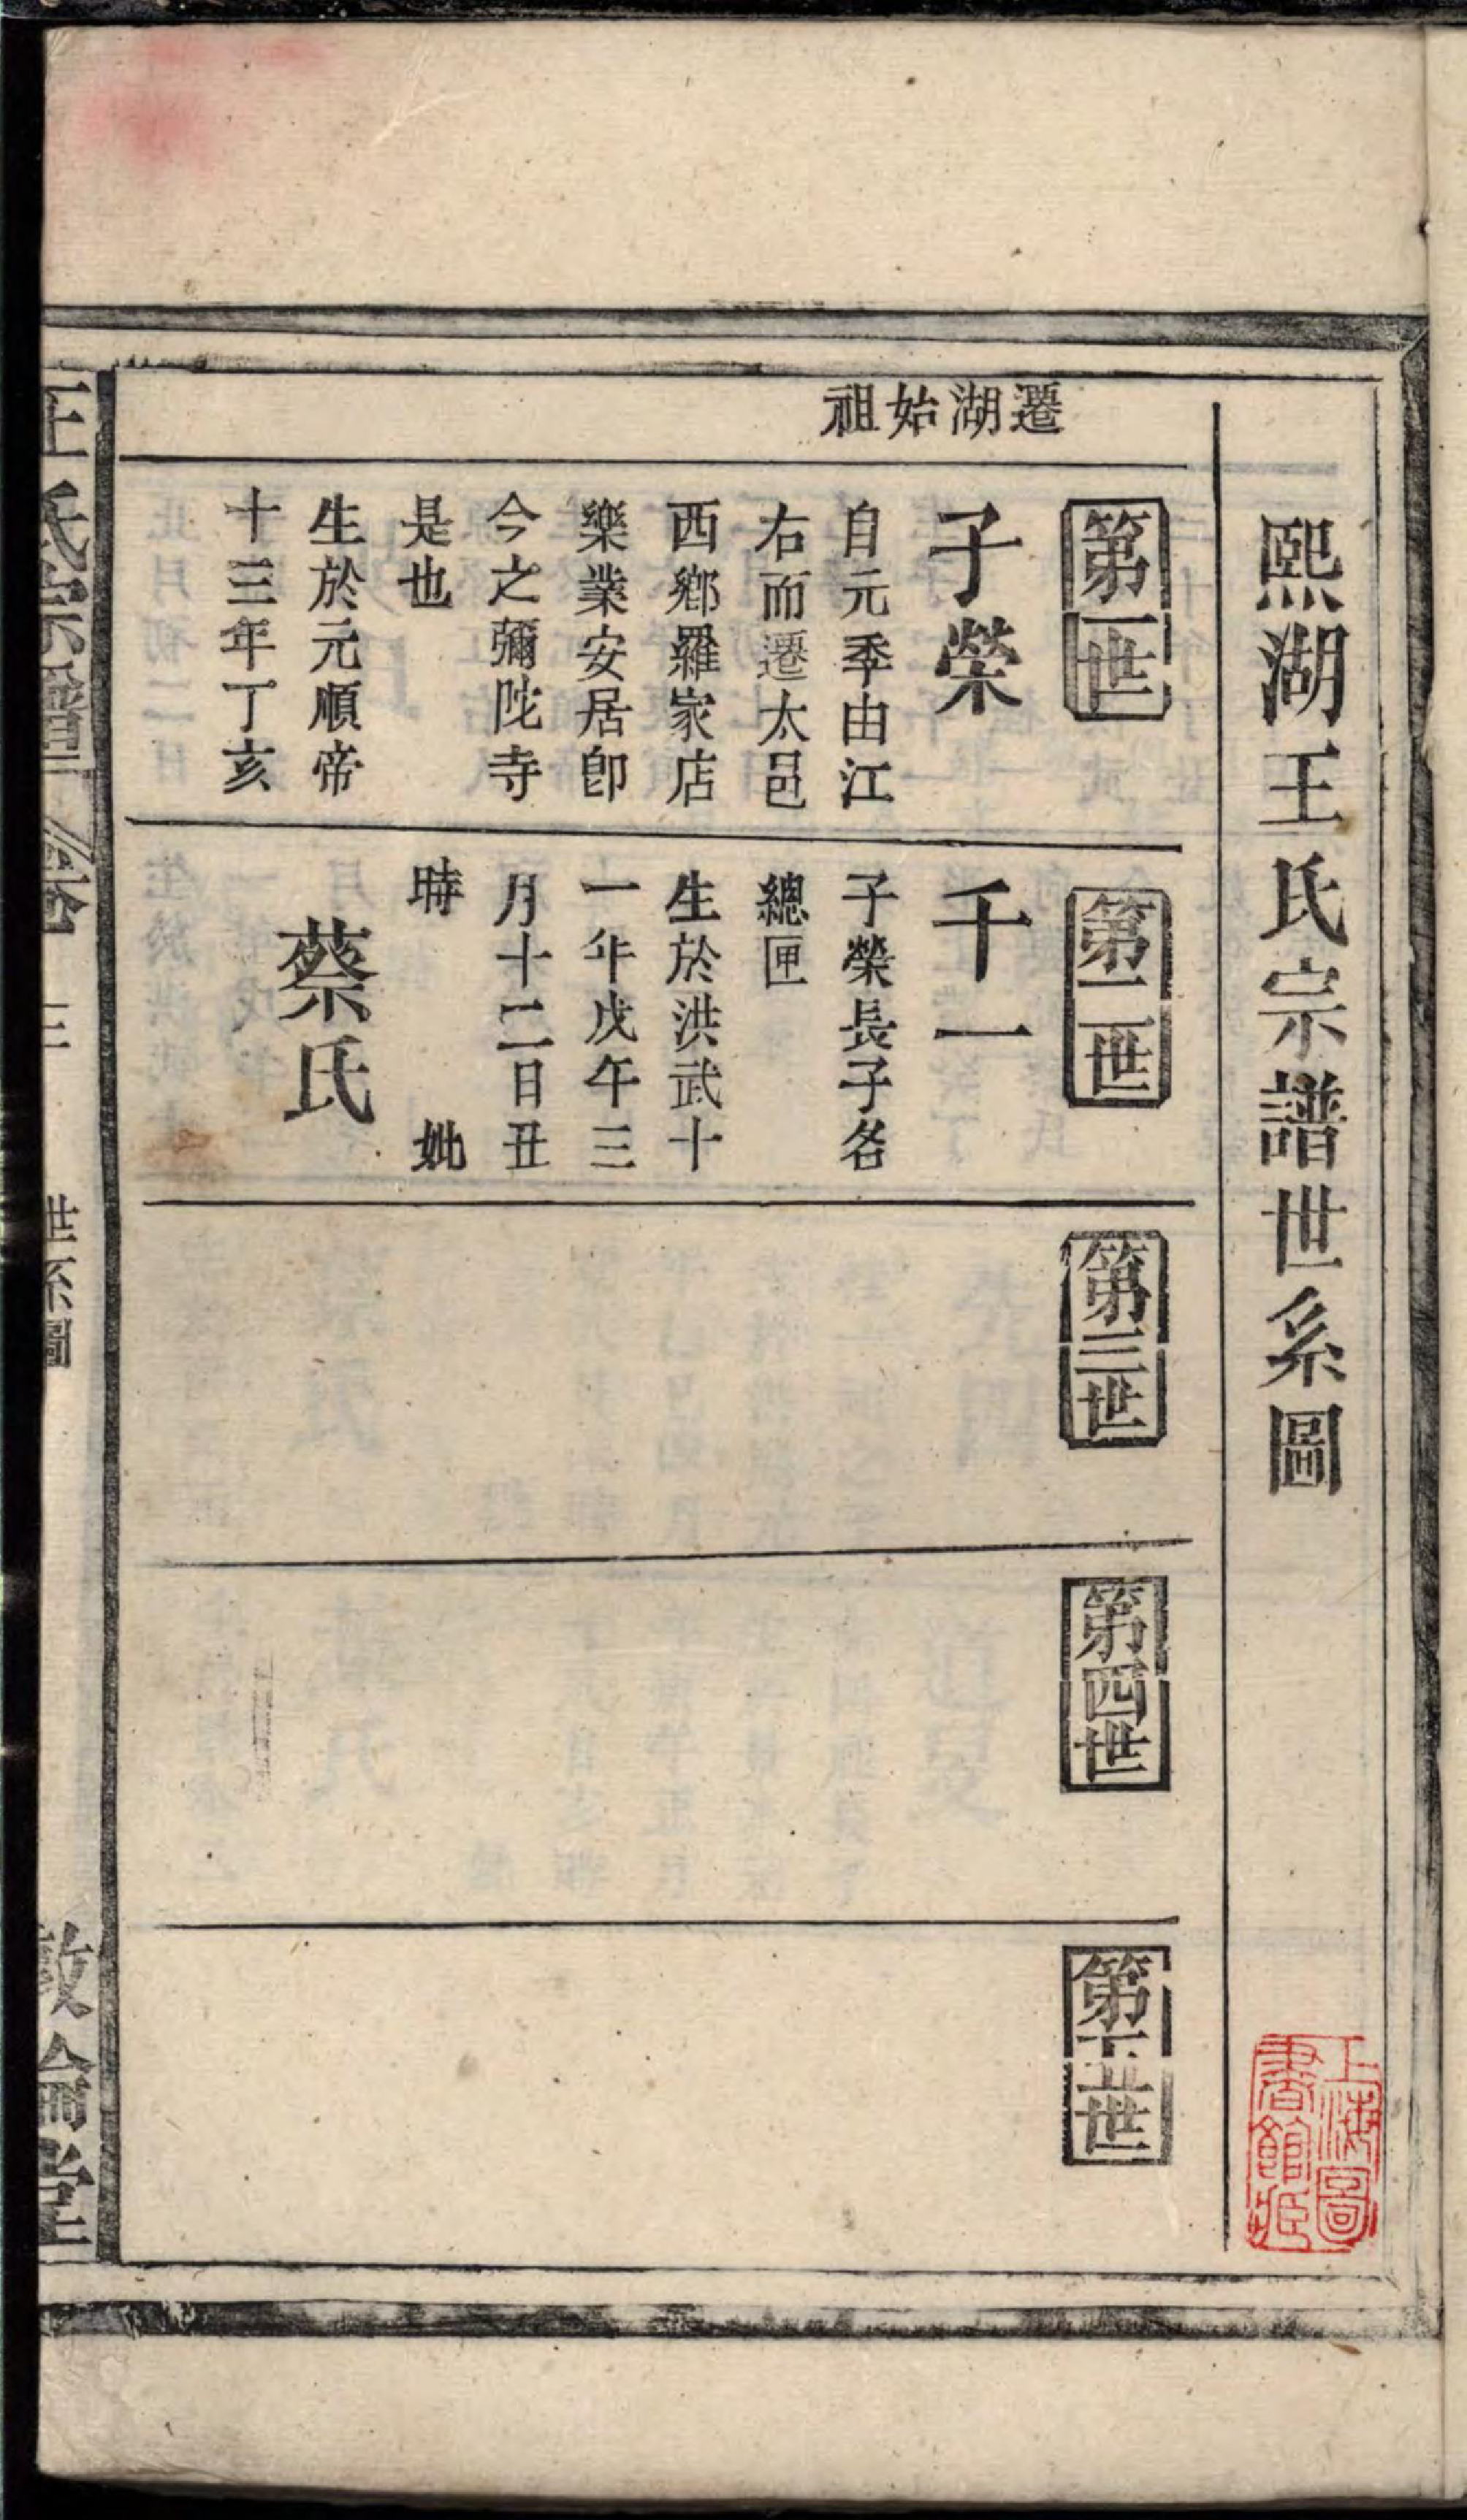 熙湖王氏宗譜世系圖
遷湖始祖
第一世
子榮
自元季由江
右而遷太邑
西鄉羅家店
樂業安居卽
今之彌陀寺
是也
生於元順帝
十三年丁亥
第二世
千一
子榮長子名
總匣
生於洪武十
一年戊午三
月十二日丑
時 妣
蔡氏
第三世
第四世
第五世
王氏宗譜 卷 三 世系圖 敦倫堂
上海圖
書館藏